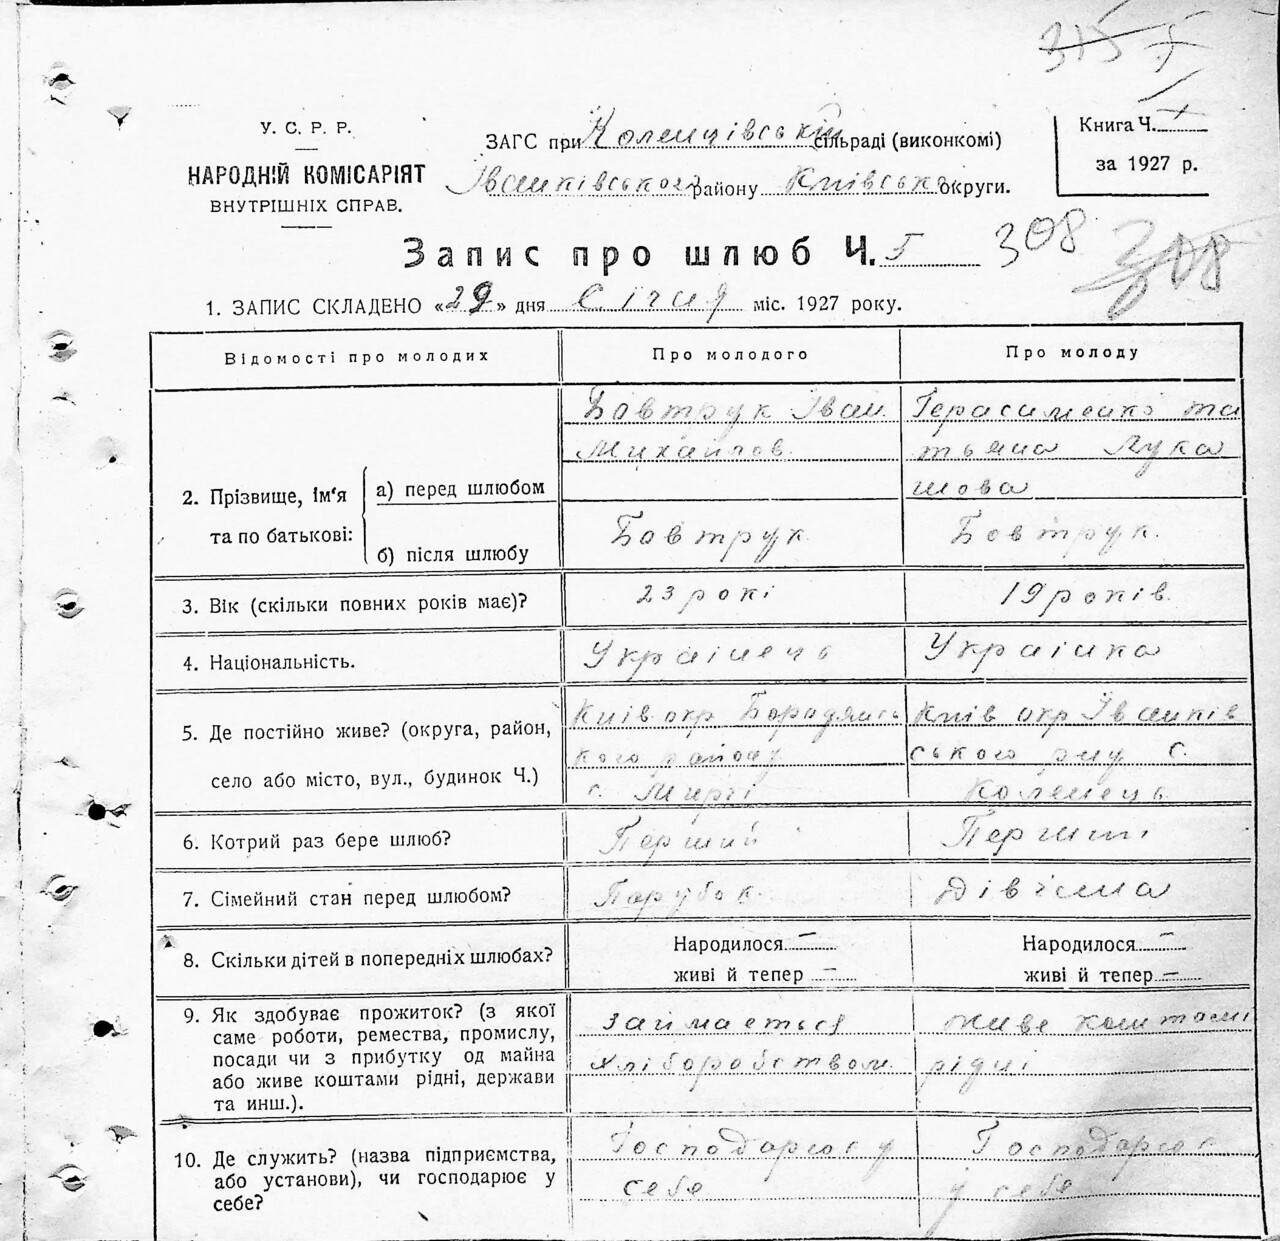 315
У. С. Р. Р.
НАРОДНІЙ КОМІСАРІЯТ
ВНУТРІШНІХ СПРАВ.
ЗАГС при Коленцівській сільраді (виконкомі)
Іванківського району Київської округи.
Книга Ч. I
за 1927 р.
Запис про шлюб Ч. 5
308
308
1. ЗАПИС СКЛАДЕНО «29» дня Січня міс. 1927 року.
Відомості про молодих
Про молодого
Про молоду
2. Прізвище, ім'я та по батькові:
а) перед шлюбом
Бовтрук Іван
Михайлов
Герасименко та
тьяна Лука
шова
б) після шлюбу
Бовтрук
Бовтрук.
3. Вік (скільки повних років має)?
23 рокі
19 років.
4. Національність.
Украінець
Украінка
5. Де постійно живе? (округа, район,
село або місто, вул., будинок Ч.)
Київ. окр Бородянсь
кого району
с. Мирчі
Київ окр Іванків
ського рну с.
Коленець
6. Котрий раз бере шлюб?
Перший
Перший
7. Сімейний стан перед шлюбом?
Парубок.
Дівчина
8. Скільки дітей в попередніх шлюбах?
Народилося —
живі й тепер —
Народилося —
живі й тепер —
9. Як здобуває прожиток? (з якої
саме роботи, ремества, промислу,
посади чи з прибутку од майна
або живе коштами рідні, держави
та инш.).
Займається
хліборобством.
живе коштамі
рідні
10. Де служить? (назва підприємства,
або установи), чи господарює у
себе?
Господарює у
себе
Господарює
у себе